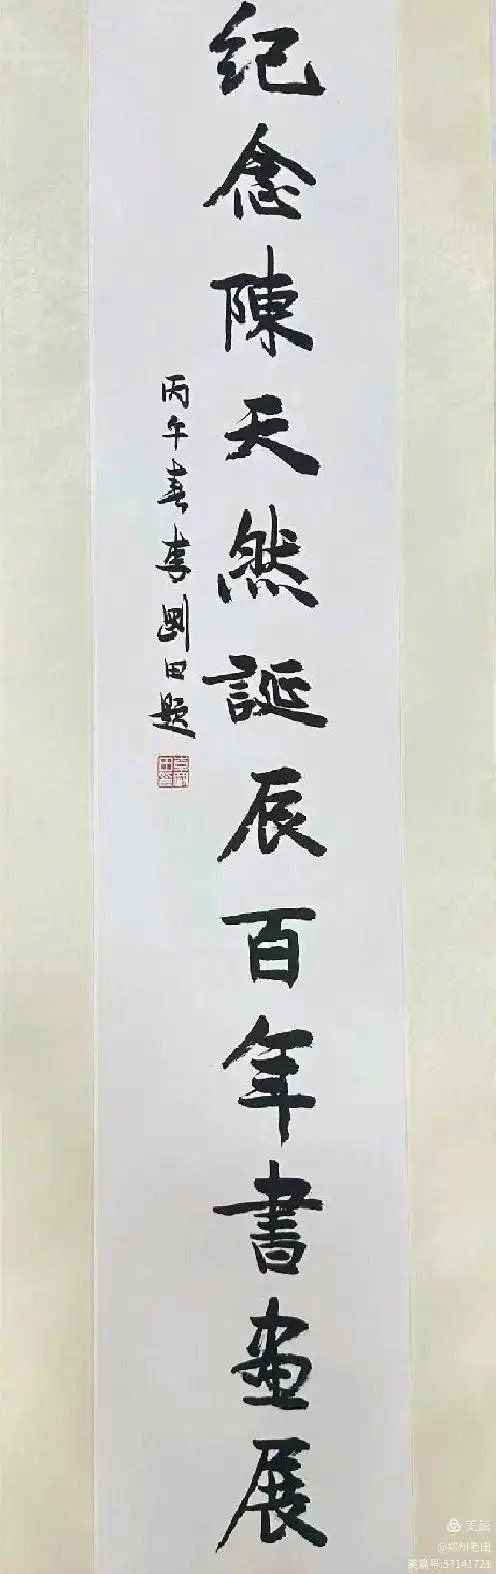 纪念陳天然誕辰百年書畫展
丙午春李剛田题
美篇
@郑州老田
美篇号:57141721